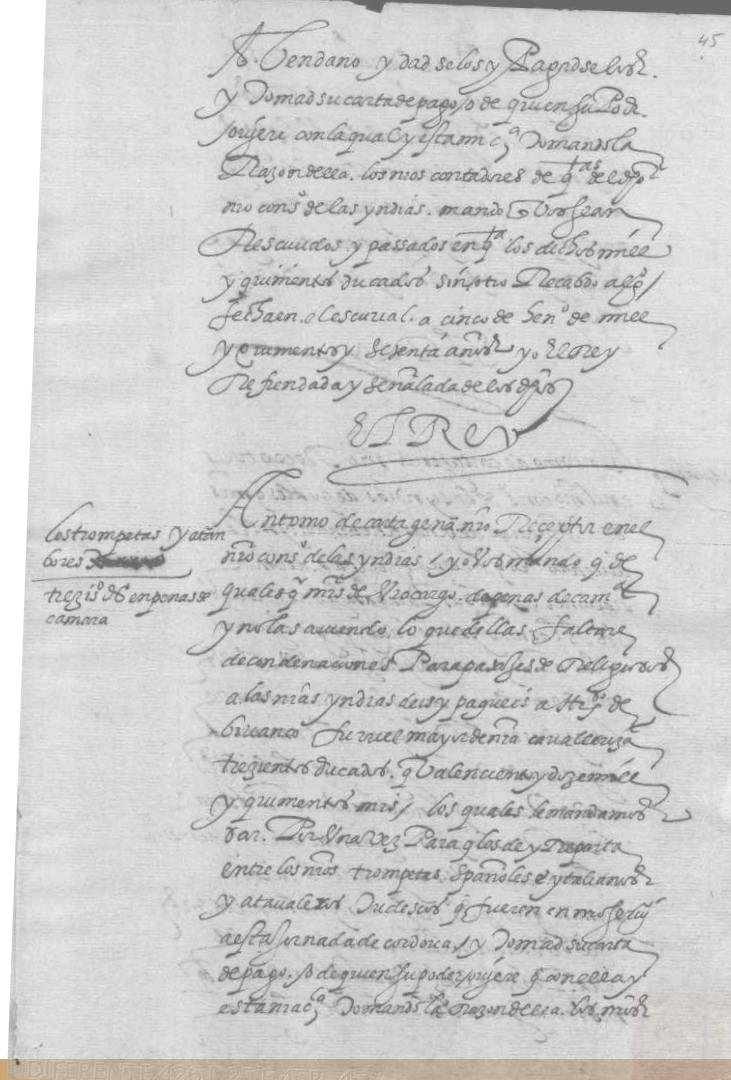 45
Abendano y dadselos y Pagadselos.
y Tomad su carta de pago, o de quien su Poder
oviere con la qual y esta mi ça Tomando la
Razon della. los nros contadores de qtas del dho
nro conso de las yndias. mando q vos sean
Rescividos y passados en qta los dichos mill
y quinientos ducados sin otro Recabdo algo /
fecha en el escurial. a cinco de heno de mill
y quinientos y setenta años yo El Rey
Refrendada y señalada de los dhos
El Rey
los trompetas y atan
bores
trezios ds en penas de
camara
Antonio de cartagena nro Receptor en el
nro conso de las yndias / yo vos mando q de
qualesqr mrs de vro cargo de penas de cama
y no las aviendo lo que dellas faltare
de condenaciones Para pasajes de Religiosos
a las nras yndias deis y pagueis a Hrmo de
furriel mayor de nra cavalleriza
trezientos ducados. q valen ciento y doze mill
y quinientos mrs / los quales le mandamos
dar. Por una vez Para q los de y Reparta
entre los nros trompetas españoles e ytalianos
y atavaleros Tudescos q fueren en nro serui
a esta jornada de cordova / y Tomad su carta
de pago. o de quien su poder oviere q con ella y
esta mi ça Tomando la Razon della. los nros